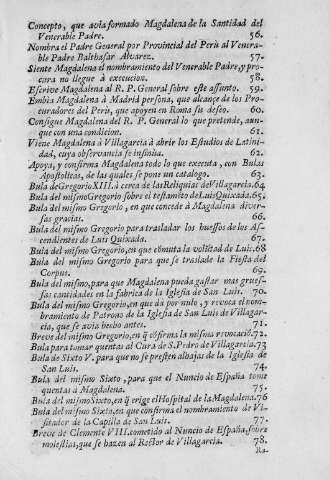 Concepto, que avia formado Magdalena de la Santidad del
Venerable Padre. 56.
Nombra el Padre General por Provincial del Perù al Venera-
ble Padre Balthasar Alvarez. 57.
Siente Magdalena el nombramiento del Venerable Padre, y pro-
cura no llegue à execucion. 58.
Escrive Magdalena al R. P. General sobre este assunto. 59.
Embia Magdalena à Madrid persona, que alcançe de los Pro-
curadores del Perù, que apoyen en Roma su deseo. 60.
Consigue Magdalena del R. P. General lo que pretende, aun-
que con una condicion. 61.
Viene Magdalena à Villagarcia à abrir los Estudios de Latini-
dad, cuya observancia se insinùa. 62.
Apoya, y confirma Magdalena todo lo que executa, con Bulas
Apostolicas, de las quales se pone un catalogo. 63.
Bula de Gregorio XIII. à cerca de las Reliquias de Villagarcia. 64
Bula del mismo Gregorio sobre el testamẽto de Luis Quixada. 65.
Bula del mismo Gregorio, en que concede à Magdalena diver-
sas gracias. 66.
Bula del mismo Gregorio para trasladar los huessos de los As-
cendientes de Luis Quixada. 67.
Bula del mismo Gregorio, en que cõmuta la volũtad de Luis. 68
Bula del mismo Gregorio para que se traslade la Fiesta del
Corpus. 69.
Bula del mismo, para que Magdalena pueda gastar mas grues-
sas cantidades en la fabrica de la Iglesia de San Luis. 70.
Bula del mismo Gregorio, en que dà por nulo, y revoca el nom-
bramiento de Patrono de la Iglesia de San Luis de Villagar-
cia, que se avia hecho antes. 71.
Breve del mismo Gregorio, en q̃ cõfirma la misma revocaciõ. 72.
Bula para tomar quentas al Cura de S. Pedro de Villagarcia. 73
Bula de Sixto V. para que no se presten alhajas de la Iglesia de
San Luis. 74.
Bula del mismo Sixto, para que el Nuncio de España tome
quentas à Magdalena. 75.
Bula del mismo Sixto, en q̃ erige el Hospital de la Magdalena. 76
Bula del mismo Sixto, en que confirma el nombramiento de Vi-
sitador de la Capilla de San Luis. 77.
Breve de Clemente VIII. cometido al Nuncio de España, sobre
molestias, que se hazen al Rector de Villagarcia. 78.
Ra-